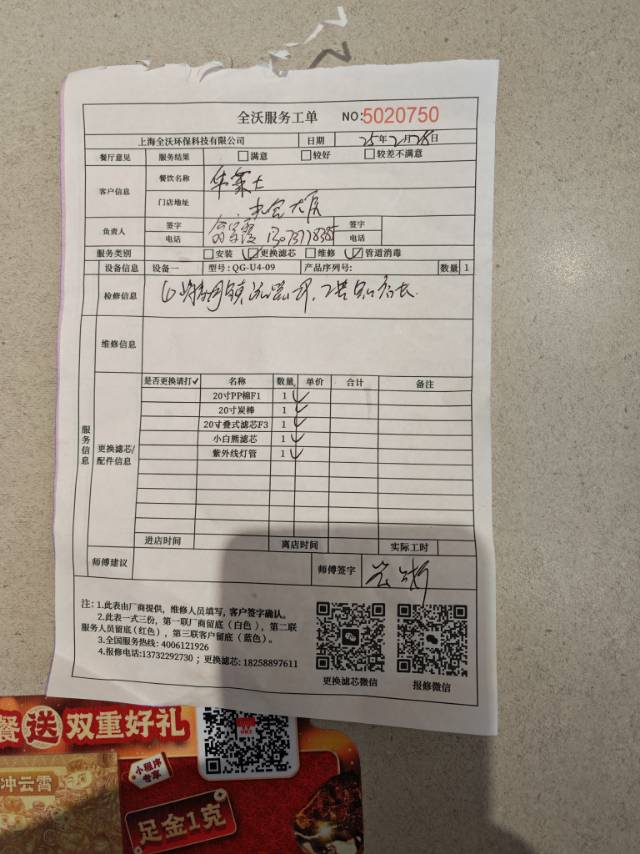 全沃服务工单 NO:5020750
上海全沃环保科技有限公司 日期 25年2月28日
餐厅意见 服务结果 □满意 □较好 □较差不满意
客户信息 餐饮名称 华莱士
门店地址
负责人 签字 签字
电话 电话
服务类别 □安装 ☑更换滤芯 □维修 ☑管道消毒
设备信息 设备一 型号:QG-U4-09 产品序列号: 数量 1
检修信息
维修信息
服务信息
更换滤芯/配件信息
是否更换请打✓ 名称 数量 单价 合计 备注
20寸PP棉F1 1 ✓
20寸炭棒 1 ✓
20寸叠式滤芯F3 1 ✓
小白熊滤芯 1 ✓
紫外线灯管 1 ✓
进店时间 离店时间 实际工时
师傅建议 师傅签字
注：1.此表由厂商提供，维修人员填写，客户签字确认。
2.此表一式三份，第一联厂商留底（白色），第二联
服务人员留底(红色)，第三联客户留底（蓝色）。
3.全国服务热线: 4006121926
4.报修电话:13732292730；更换滤芯: 18258897611
更换滤芯微信 报修微信
餐送双重好礼
小程序
专享
冲云霄
足金1克